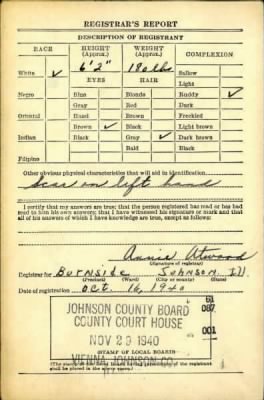 REGISTRAR'S REPORT
DESCRIPTION OF REGISTRANT
RACE HEIGHT (Approx.) WEIGHT (Approx.) COMPLEXION
6' 2" 180 lb. Sallow
White ✓ EYES HAIR Light
Negro Blue Blonde Ruddy ✓
Gray Red Dark
Oriental Hazel Brown Freckled
Brown ✓ Black Light brown
Indian Black Gray ✓ Dark brown
Bald Black
Filipino
Other obvious physical characteristics that will aid in identification
Scar on left hand
I certify that my answers are true; that the person registered has read or has had
read to him his own answers; that I have witnessed his signature or mark and that
all of his answers of which I have knowledge are true, except as follows:
Annie Atwood
(Signature of registrar)
Registrar for Burnside Johnson Ill.
(Precinct) (Ward) (City or county) (State)
Date of registration Oct. 16, 1940
JOHNSON COUNTY BOARD 61
COUNTY COURT HOUSE 087
001
NOV 29 1940
(STAMP OF LOCAL BOARD)
VIENNA, JOHNSON CO.
shall be placed in the above space.)